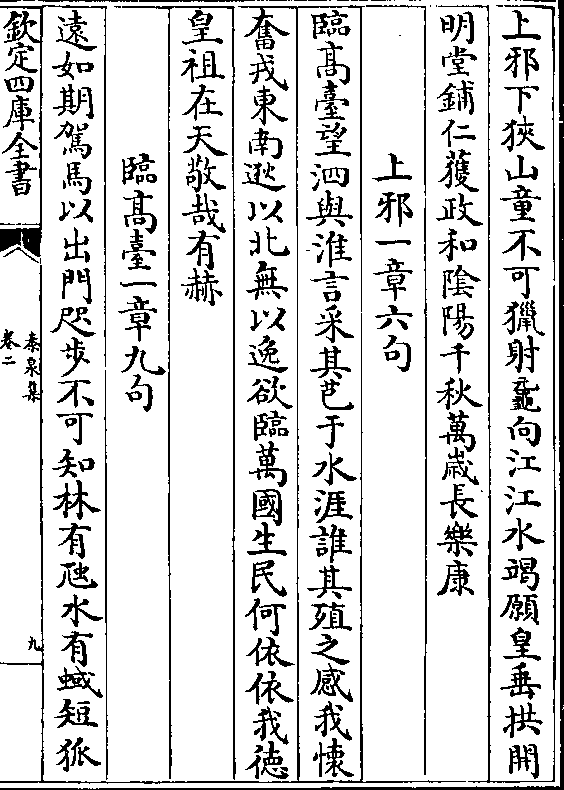 上邪下狹山童不可獵射黿向江江水竭願皇垂拱開
明堂鋪仁蒦政和陰陽千秋萬歲長樂康
上邪一章六句
臨高臺望泗與淮言采其芑于水涯誰其殖之感我懷
奮戎東南遯以北無以逸欲臨萬國生民何依依我徳
皇祖在天敬哉有赫
臨高臺一章九句
遠如期駕馬以出門咫歩不可知林有虺水有蜮短狐
欽定四庫全書
泰泉集
卷二
九